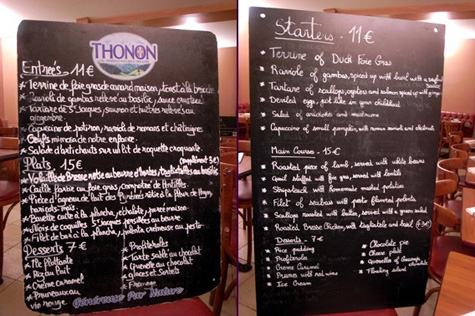 THONON
Entrées 11€
Terrine de foie gras de canard maison, toast à la brioche
Ravioli de gambas rôties au basilic, sauce
Tartare de St Jacques, saumon et huîtres relevé au
gingembre
Capuccino de potiron, ravioli de romans et châtaignes
Oeufs mimosa de notre enfance
Salade d'artichauts sur un lit de roquette croquante
Plats 15€
(supplément 3€)
Volaille de Bresse rôtie au beurre d'herbes,
Caille farcie au foie gras, compotée de lentilles
Pièce d'agneau de lait des Pyrénées rôtie à la fleur de thym,
haricots
Bavette cuite à la plancha, échalote, purée maison
Noix de coquilles St Jacques
Filet de bar à la plancha, pesto
Desserts 7€
Ile flottante
Riz au lait
Crème caramel
Pruneaux au
vin rouge
Profiteroles
Tarte sablée au chocolat
Quenelle au chocolat
Glaces et Sorbets
Fromage
Généreuse Par Nature
Starters - 11€
Terrine of Duck Foie Gras
Raviole of gambas, spiced up with basil
sauce
Tartare of scallops, oysters and salmon spiced up with ginger
Deviled eggs, just like in your childhood
Salad of artichokes and mushrooms
Capuccino of small pumpkin, with romans and chestnuts
Main Courses - 15€
Roasted piece of lamb, served with white beans
Quail stuffed with foie gras, served with lentils
Steak with homemade mashed potatoes
Filet of seabass with pesto flavored polenta
Scallops roasted with butter, served with a green salad
Roasted Bresse Chicken, with
Desserts - 7€
Rice pudding
Profiterole
Creme Caramel
Prunes with red wine
Ice Cream
Chocolate pie
Cheese plate
Quenelles of
Floating island